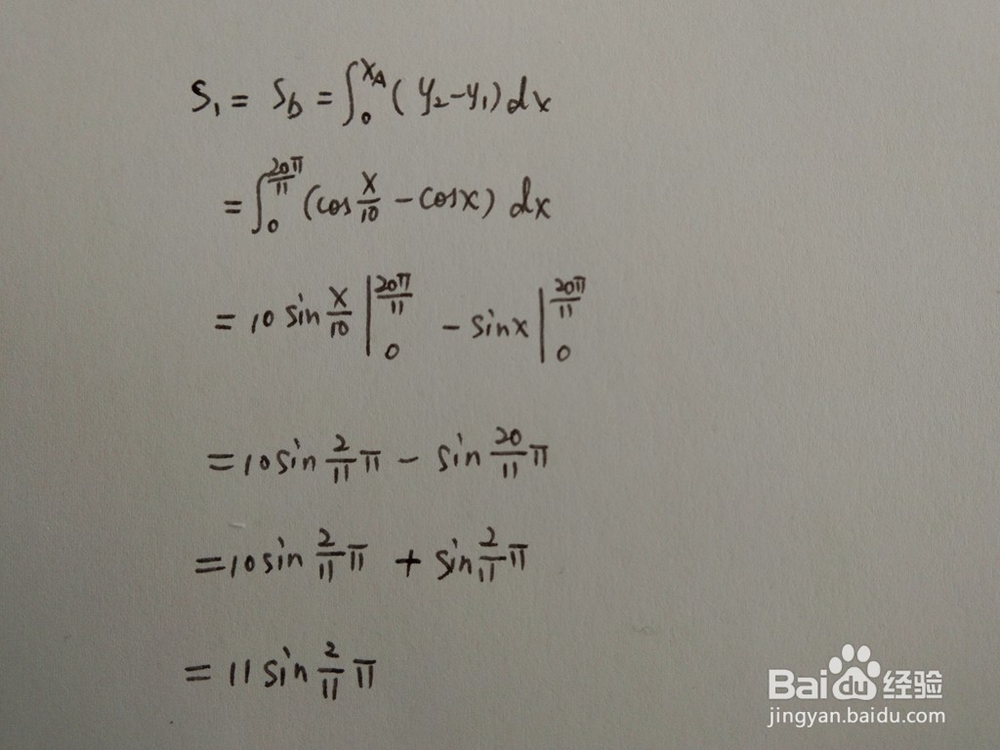 S₁ = S_b = ∫₀^{x_A} (y₂-y₁) dx
= ∫₀^{20π/11} (cos x/10 - cosx) dx
= 10 sin x/10 |₀^{20π/11} - sinx |₀^{20π/11}
= 10 sin 2/11 π - sin 20/11 π
= 10 sin 2/11 π + sin 2/11 π
= 11 sin 2/11 π
Baidu经验
jingyan.baidu.com